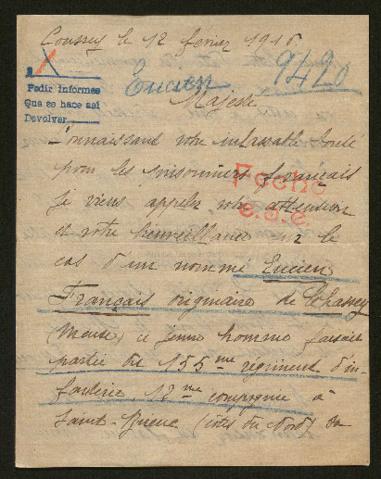 Coussey le 12 février 1916
9420
Pedir informes
Que se hace asi
Devolver
Eucien
Majesté
Connaissant votre inlassable bonté
pour les prisonniers français
je viens appeler votre attention
et votre bienveillance sur le
cas d'un nommé Eucien
Français originaire de Chassey
(Meuse) ce jeune homme faisait
partie du 155me régiment d'in-
fanterie, 12me compagnie à
Saint-Brieuc (côtes du Nord)